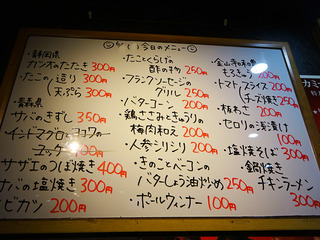 今日のメニュー
・静岡県
カツオのたたき 300円
・たこの造り 300円
天ぷら 300円
・青森県
サバのきずし 350円
インドマグロ
ユッケ
サザエのつぼ焼き 400円
サバの塩焼き 300円
ビカツ 200円
・たことくらげの
酢の物 250円
・フランクソーセージの
グリル 250円
・バターコーン 200円
・鶏ささみときゅうりの
梅肉和え 200円
・人参シリシリ 200円
・きのことベーコンの
バターしょう油炒め 250円
・ポールウィンナー 100円
・金山寺
もろきゅう 200円
・トマトスライス 200円
（チーズ焼き 250円）
・板わさ 200円
・セロリの浅漬け
100円
・塩焼そば 300円
・鍋焼き
チキンラーメン
300円